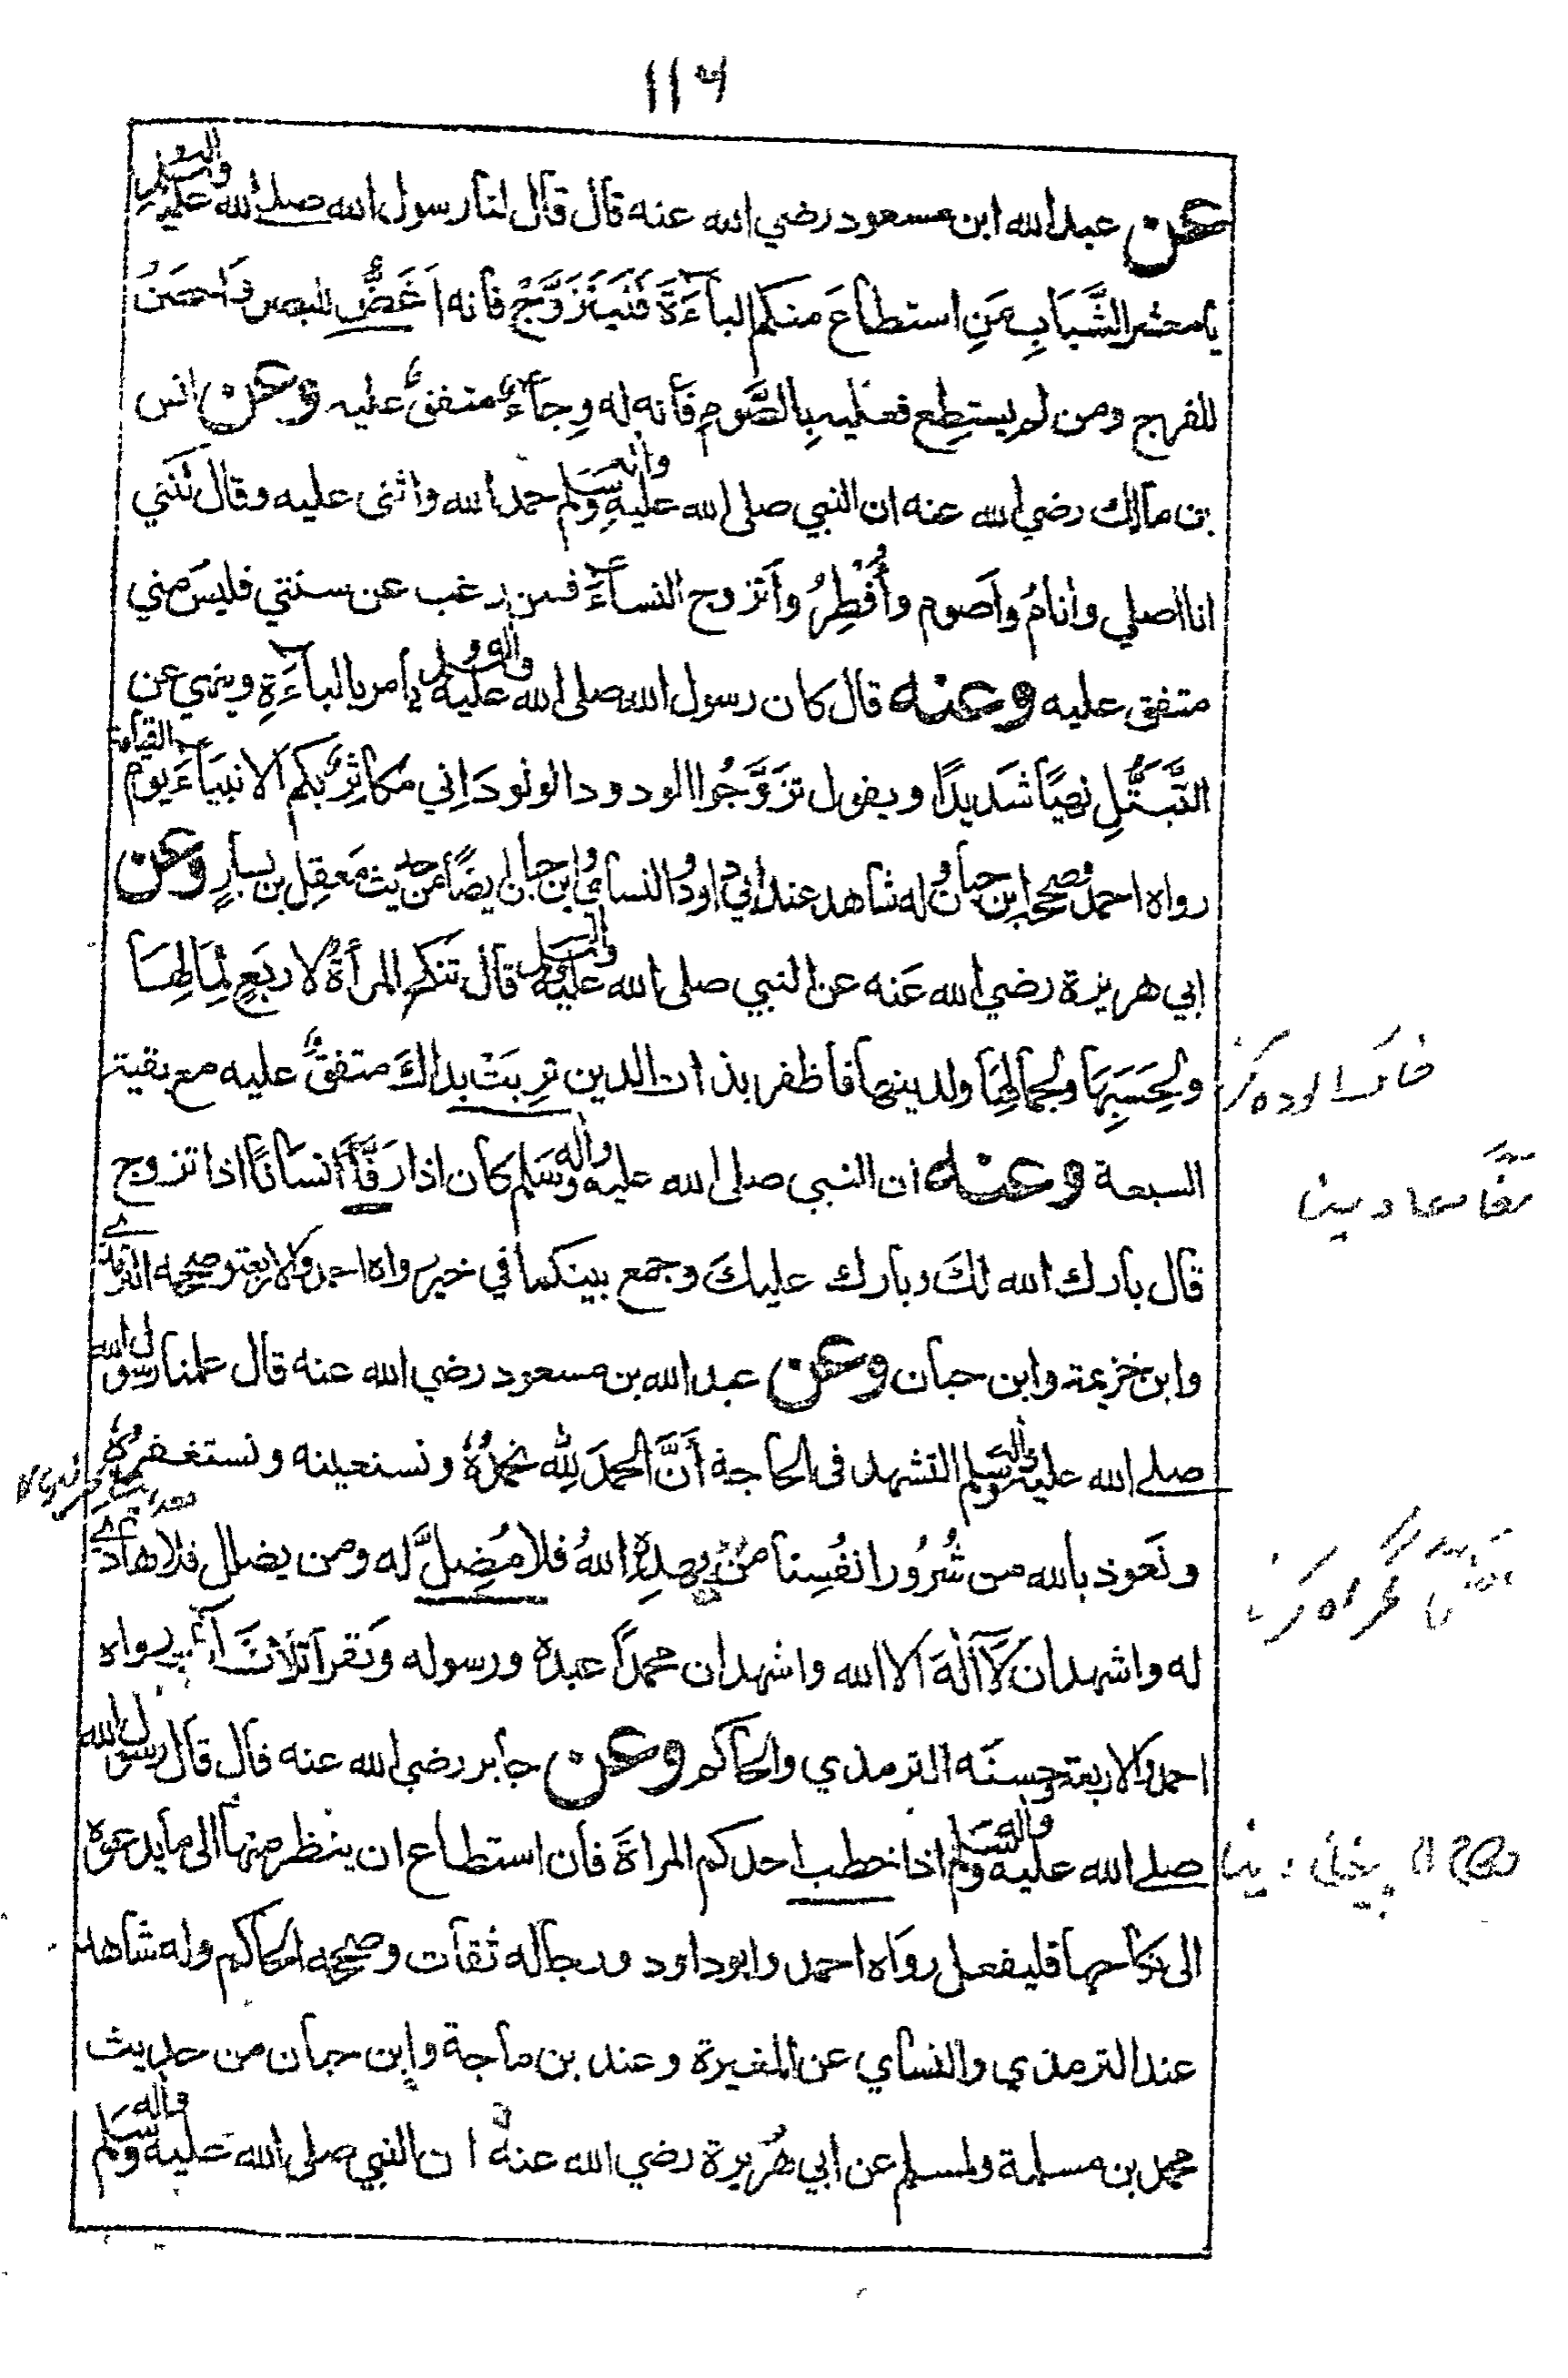 ١١٦
عن عبد الله ابن مسعود رضي الله عنه قال قال لنا رسول الله صلى الله عليه واله وسلم
يا معشر الشَّبَابِ مَنِ استطاعَ منكم الباۤءَةَ فَليَتَزَوَّجْ فانه اَغَضُّ للبصر وَاَحصَنُ
للفرج ومن لم يستطِع فعليه بِالصَّومِ فانه له وِجاۤءٌ متفقٌ عليه وعن انس
بن مالك رضي الله عنه ان النبي صلى الله عليهِ واله وسلم حمد الله واثنى عليه وقال لكني
انا اصلي وانامُ واَصوم واُفْطِرُ واَتزوج النساۤءَ فمن رغب عن سنتي فليسَ مني
متفق عليه وعنه قال كان رسول الله صلى الله عليه واله وسلم يأمر بالباۤءَةِ وينهي عن
التَّبَتُّلِ نهيًا شَديدًا ويقول تزَوَّجُوا الودود الولودَ اِني مُكاثِرٌ بكم الانبياۤءَ يوم القيامة
رواه احمد وصححه ابن حبان وله شاهد عند ابي داود والنسائي وابن حبان ايضًا من حديث مَعقِل بن يسارٍ وعن
ابي هريرة رضي الله عَنه عن النبي صلى الله عليه واله وسلم قال تنكح المرأةُ لاربَعٍ لِمَالِهَا
ولِحَسَبِهَا ولجمالِهَا ولدينها فاظفر بذات الدين تَرِبَتْ يداكَ متفقٌ عليه مع بقية
خاك الوده كر
السبعة وعنه ان النبي صلى الله عليه واله وسَلم كان اذا رَفَّأَ انسانًا اذا تزوج
قال بارك الله لكَ وبارك عليكَ وجمع بينكما في خير رواه احمد والاربعة وصححه الترمذي
وابن خزيمة وابن حبان وعن عبد الله بن مسعود رضي الله عنه قال علمنا رسول الله
صلى الله عليه واله وسلم التشهد فى الحاجة اَنَّ الحمدَ لِلّٰه نحمدُهُ ونستعينه ونستغفرُهُ
ونَعوذ بالله من شُرُور انفُسِنا مَنْ يهدِهِ اللهُ فلا مُضِلَّ له ومن يضلل فلا هادي
له واشهد ان لَّاۤ اِلٰهَ الا الله واشهد ان محمدًا عبده ورسوله وَيقرأ ثلاثَ آيات رواه
احمد والاربعة وحسنَه الترمذي والحاكم وعن جابر رضي الله عنه قال قال رسول الله
صلى الله عليه واله وسلم اذا خطب احدكم المراَةَ فان استطاع ان ينظر منها الى ما يدعوه
الى نكاحها فليفعل رواه احمد وابوداود ورجاله ثقات وصححه الحاكم وله شاهد
عند الترمذي والنساي عن المغيرة وعند بن ماجة وابن حبان من حديث
محمد بن مسلمة ولمسلم عن ابي هُرَيرة رضي الله عنه ان النبي صلى الله عليه واله وسلم